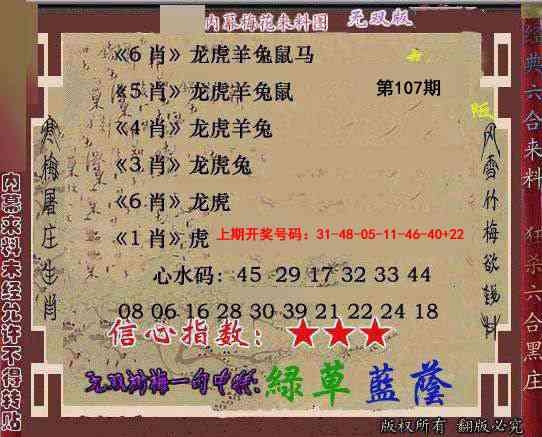 内幕梅花来料图 无双版
《6肖》龙虎羊兔鼠马
《5肖》龙虎羊兔鼠 第107期
《4肖》龙虎羊兔
《3肖》龙虎兔
《6肖》龙虎
《1肖》虎 上期开奖号码：31-48-05-11-46-40+22
心水码：45 29 17 32 33 44
08 06 16 28 30 39 21 22 24 18
信心指数：★★★
无双输梅一句中特:綠草藍蔭
版权所有 翻版必究
内幕来料未经允许不得转贴
寒梅屠庄生肖
风雪竹梅欲
经典六合来料 狂杀六合黑庄